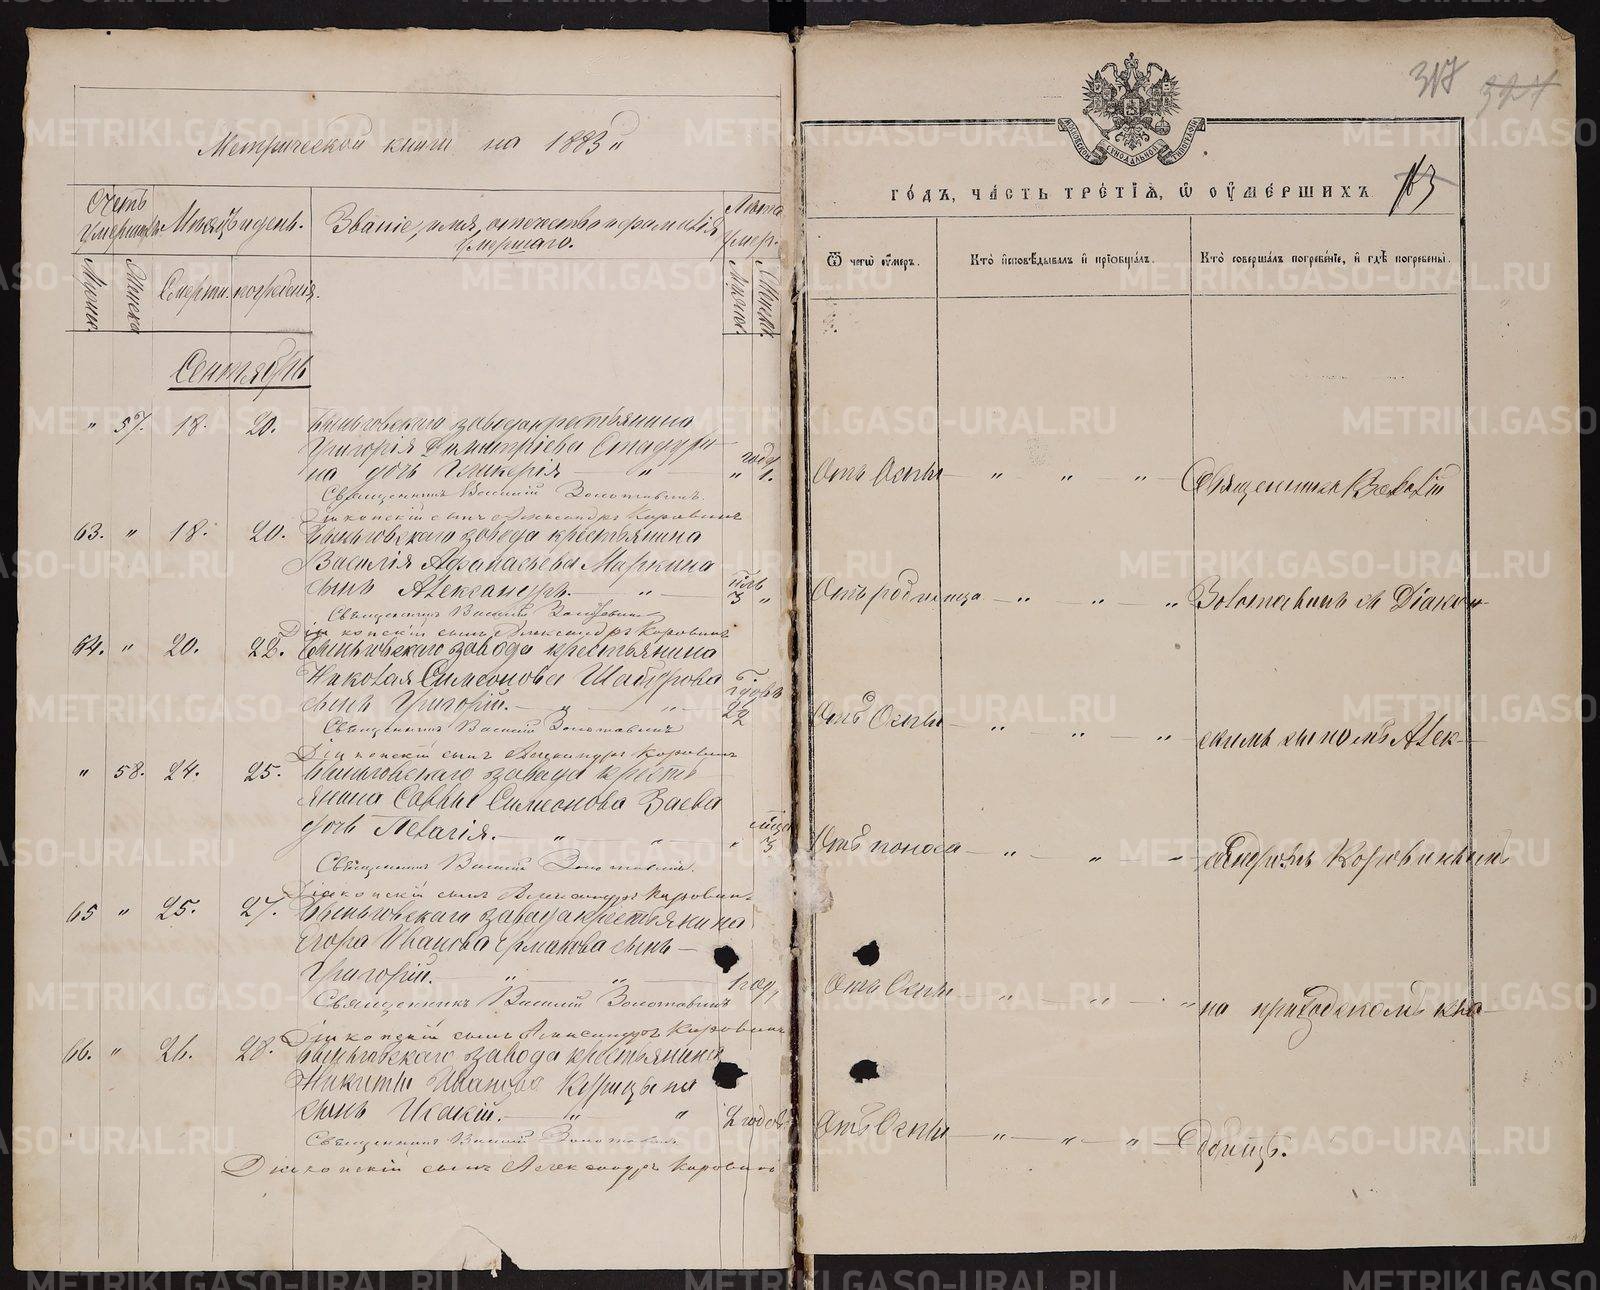 Метрической книги на 1883"
Счетъ умершихъ.
Мѣсяцъ и день.
Званіе, имя, отчество и фамилія умершаго.
Лѣта умер.
Мужск.
Женска
Смерти.
погребенія.
Мужск.
Женск.
Сентябрь
" 57. 18. 20. Быньговскаго завода крестьянина
Григорія Димитріева
на дочь Гликерія — " году " 1.
Священникъ Василій Золотавинъ.
Діаконскій сынъ Александръ Коровинъ
63. " 18. 20. Быньговскаго завода крестьянина
Василія Афанасьева Маркина
сынъ Александръ. — " — 3 "
Священникъ Василій Золотавинъ
Діаконскій сынъ Александръ Коровинъ
64. " 20. 22. Быньговскаго завода крестьянина
Николая Симеонова Шабурова
сынъ Григорій. — " — "
Священникъ Василій Золотавинъ
Діаконскій сынъ Александръ Коровинъ
" 58. 24. 25. Быньговскаго завода кресть
янина Саввы Симеонова Заева
дочь Пелагія. — " " " 3
Священникъ Василій Золотавинъ.
Діаконскій сынъ Александръ Коровинъ
65 " 25. 27. Быньговскаго завода крестьянина
Егора Иванова Ермакова сынъ —
Григорій. — " — " — 1 год.
Священникъ Василій Золотавинъ
Діаконскій сынъ Александръ Коровинъ
66. " 26. 28. Быньговскаго завода крестьянина
Никиты Иванова Курицына
сынъ Исакій. — " " 2 годовъ
Священникъ Василій Золотавинъ
Діаконскій сынъ Александръ Коровинъ
317 327
МОСКОВСКОЙ СѴНОДАЛЬНОЙ ТИПОГРАФІИ
го́дъ, ча́сть тре́тїѧ, ѡ҆ оу҆ме́ршихъ 163
Ѿ чегѡ̀ оу҆́меръ.
Кто̀ и҆сповѣ́дывалъ и҆ прїѡбща́лъ.
Кто̀ соверша́лъ погребе́нїе, и҆ гдѣ̀ погребены̀.
Отъ Оспы — " " " — Священникъ Василій
Отъ родимца — " " " Золотавинъ съ Діакон-
Отъ Оспы — " " — " скимъ сыномъ Алек-
Отъ поноса — " — " — " сандромъ Коровинымъ
Отъ Оспы — " — " — " на приходскомъ кла-
Отъ Оспы — " — " — " — дбищѣ.
METRIKI.GASO-URAL.RU